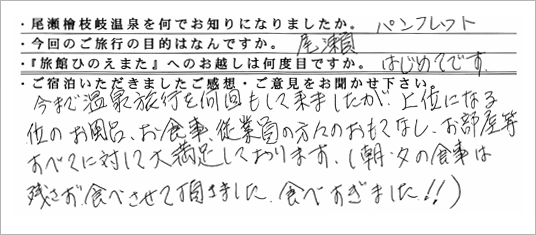 ・尾瀬檜枝岐温泉を何でお知りになりましたか。 パンフレット
・今回のご旅行の目的はなんですか。 尾瀬
・『旅館ひのえまた』へのお越しは何度目ですか。 はじめてです。
・ご宿泊いただきましたご感想・ご意見をお聞かせ下さい。
今まで温泉旅行を何回もして来ましたが、上位になる
位のお風呂、お食事、従業員の方々のおもてなし、お部屋等
すべてに対して大満足しております。(朝・夕の食事は
残さず食べさせて頂きました。食べすぎました!!)